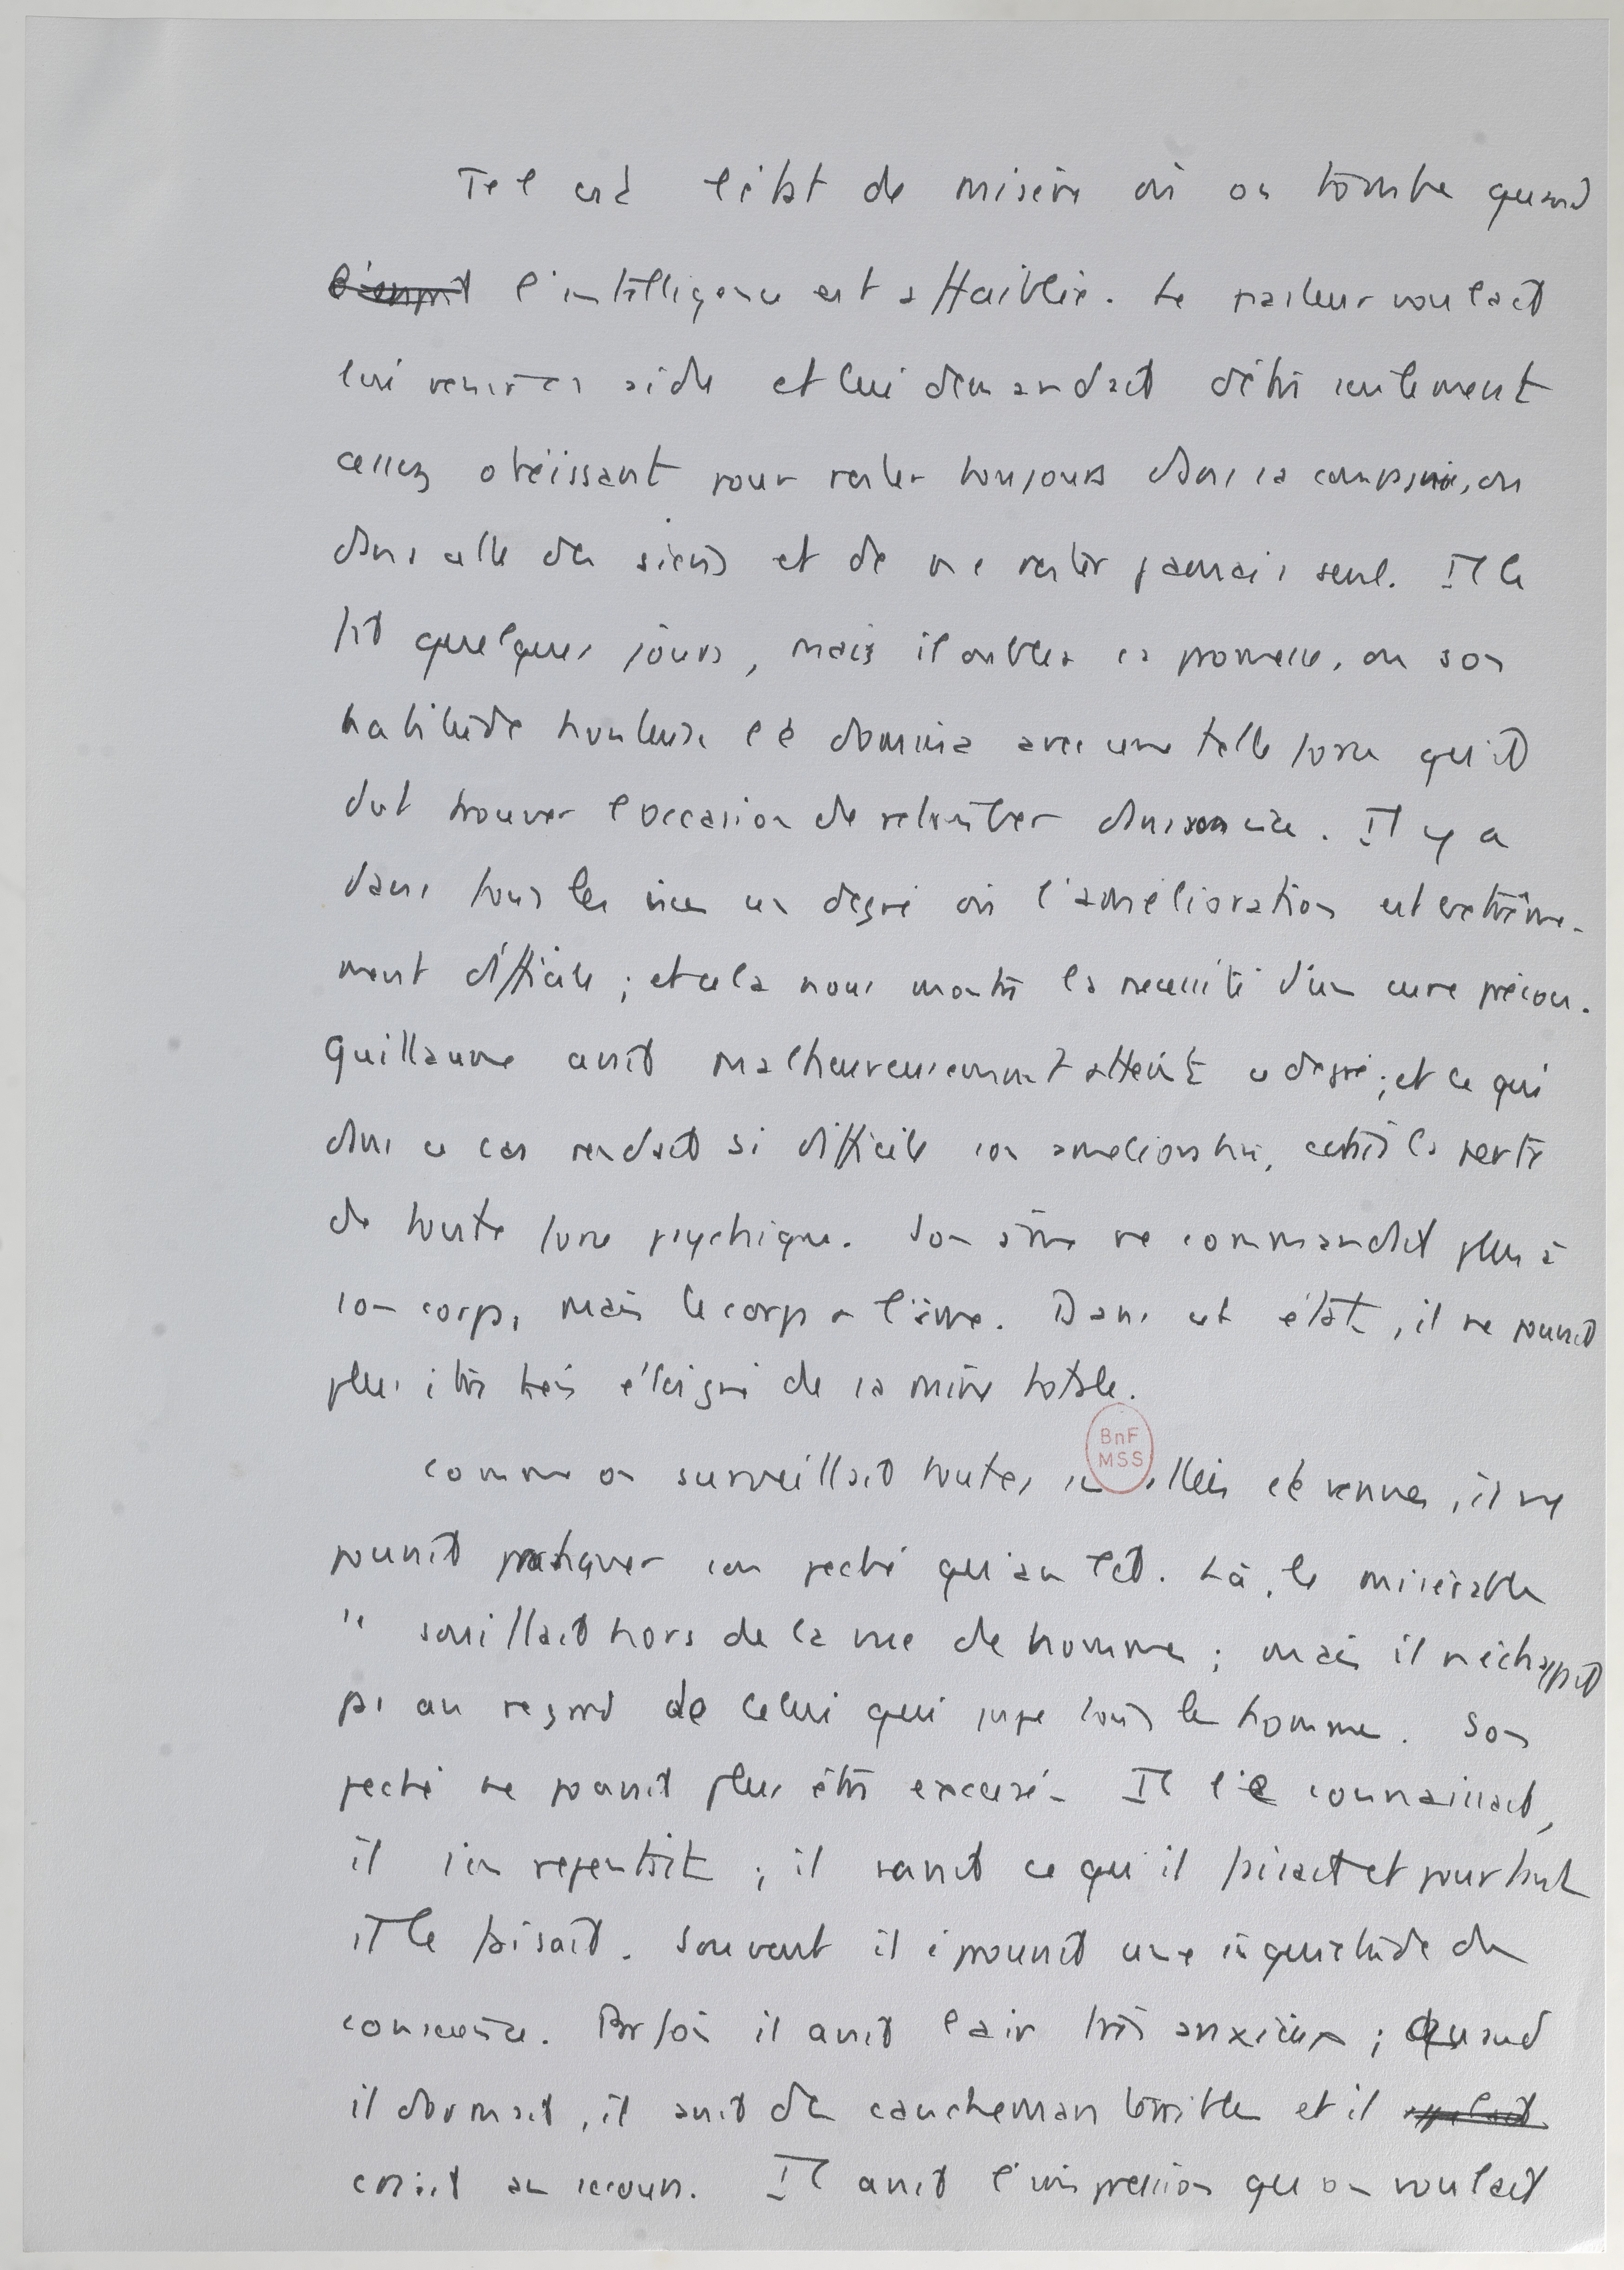 Tel est l'état de misère où on tombe quand
l'esprit l'intelligence est affaiblie. Le pasteur voulait
lui venir en aide et lui demandait d'être seulement
assez obéissant pour rester toujours dans sa compagnie, ou
dans celle des siens et de ne rester jamais seul. Il le
fit quelques jours, mais il oublia sa promesse, ou son
habitude honteuse le domina avec une telle force qu'il
dut trouver l'occasion de retomber dans son vice. Il y a
dans tous les vices un degré où l'amélioration est extrême-
ment difficile ; et cela nous montre la nécessité d'une cure précoce.
Guillaume avait malheureusement atteint ce degré ; et ce qui
dans ce cas rendait si difficile son amélioration, c'était la perte
de toute force psychique. Son âme ne commandait plus à
son corps, mais le corps à l'âme. Dans cet état, il ne pouvait
plus être très éloigné de sa ruine totale.
Comme on surveillait toutes ses allées et venues, il ne
pouvait pratiquer son péché qu'au lit. Là, le misérable
se souillait hors de la vue de hommes ; mais il n'échappait
pas au regard de celui qui juge tous les hommes. Son
péché ne pouvait plus être excusé. Il le connaissait,
il s'en repentait ; il savait ce qu'il faisait et pourtant
il le faisait. Souvent il éprouvait une inquiétude de
conscience. Parfois il avait l'air très anxieux ; quand
il dormait, il avait des cauchemars terribles et il appelait
criait au secours. Il avait l'impression qu'on voulait
BnF
MSS